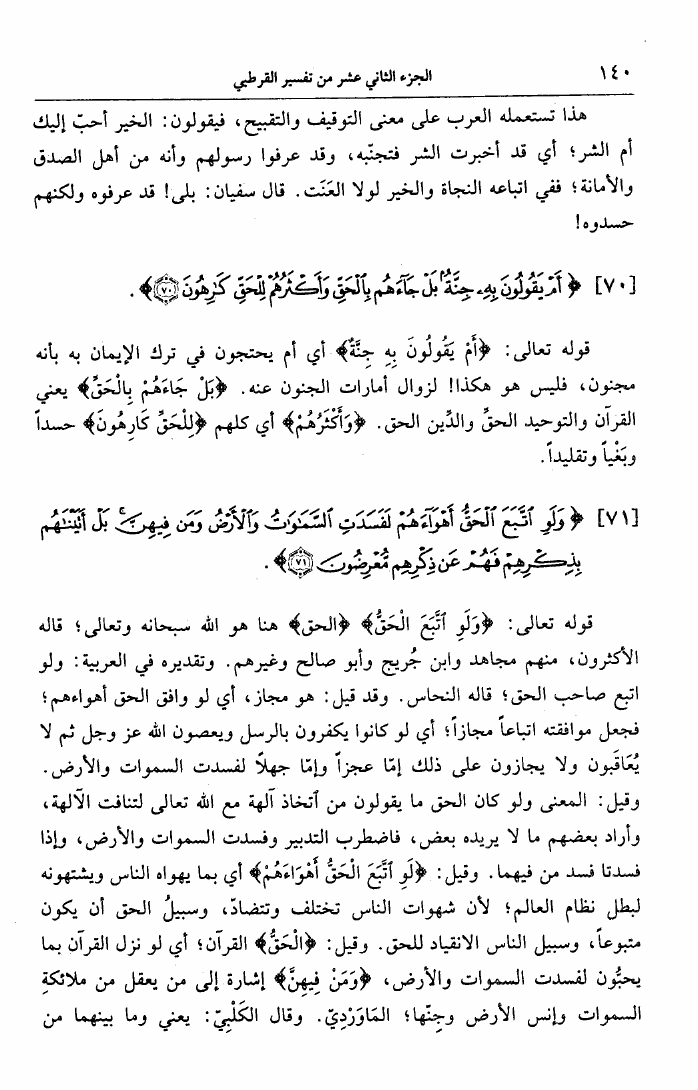 ١٤٠ الجزء الثاني عشر من تفسير القرطبي
هذا تستعمله العرب على معنى التوقيف والتقبيح، فيقولون: الخير أحبّ إليك
أم الشر؛ أي قد أخبرت الشر فتجنّبه، وقد عرفوا رسولهم وأنه من أهل الصدق
والأمانة؛ ففي اتباعه النجاة والخير لولا العَنَت. قال سفيان: بلى! قد عرفوه ولكنهم
حسدوه!
[٧٠] ﴿أَمْ يَقُولُونَ بِهِۦ جِنَّةٌۢ بَلْ جَآءَهُم بِٱلْحَقِّ وَأَكْثَرُهُمْ لِلْحَقِّ كَٰرِهُونَ ۝٧٠﴾.
قوله تعالى: ﴿أَمْ يَقُولُونَ بِهِ جِنَّةٌ﴾ أي أم يحتجون في ترك الإيمان به بأنه
مجنون، فليس هو هكذا! لزوال أمارات الجنون عنه. ﴿بَلْ جَاءَهُمْ بِالْحَقِّ﴾ يعني
القرآن والتوحيد الحقّ والدِّين الحق. ﴿وَأَكْثَرُهُمْ﴾ أي كلهم ﴿لِلْحَقِّ كَارِهُونَ﴾ حسداً
وبَغْياً وتقليداً.
[٧١] ﴿وَلَوِ ٱتَّبَعَ ٱلْحَقُّ أَهْوَآءَهُمْ لَفَسَدَتِ ٱلسَّمَٰوَٰتُ وَٱلْأَرْضُ وَمَن فِيهِنَّ ۚ بَلْ أَتَيْنَٰهُم
بِذِكْرِهِمْ فَهُمْ عَن ذِكْرِهِم مُّعْرِضُونَ ۝٧١﴾.
قوله تعالى: ﴿وَلَوِ ٱتَّبَعَ الْحَقُّ﴾ ﴿الحق﴾ هنا هو الله سبحانه وتعالى؛ قاله
الأكثرون، منهم مجاهد وابن جُريج وأبو صالح وغيرهم. وتقديره في العربية: ولو
اتبع صاحب الحق؛ قاله النحاس. وقد قيل: هو مجاز، أي لو وافق الحق أهواءهم؛
فجعل موافقته اتباعاً مجازاً؛ أي لو كانوا يكفرون بالرسل ويعصون الله عز وجل ثم لا
يُعَاقَبون ولا يجازون على ذلك إمّا عجزاً وإمّا جهلاً لفسدت السموات والأرض.
وقيل: المعنى ولو كان الحق ما يقولون من ٱتخاذ آلهة مع الله تعالى لتنافت الآلهة،
وأراد بعضهم ما لا يريده بعض، فاضطرب التدبير وفسدت السموات والأرض، وإذا
فسدتا فسد من فيهما. وقيل: ﴿لَوِ ٱتَّبَعَ الْحَقُّ أَهْوَاءَهُمْ﴾ أي بما يهواه الناس ويشتهونه
لبطل نظام العالم؛ لأن شهوات الناس تختلف وتتضادّ، وسبيلُ الحق أن يكون
متبوعاً، وسبيل الناس الانقياد للحق. وقيل: ﴿الْحَقُّ﴾ القرآن؛ أي لو نزل القرآن بما
يحبُّون لفسدت السموات والأرض، ﴿وَمَنْ فِيهِنَّ﴾ إشارة إلى من يعقل من ملائكةِ
السموات وإنس الأرض وجنّها؛ المَاوَرْدِيّ. وقال الكَلْبِيّ: يعني وما بينهما من